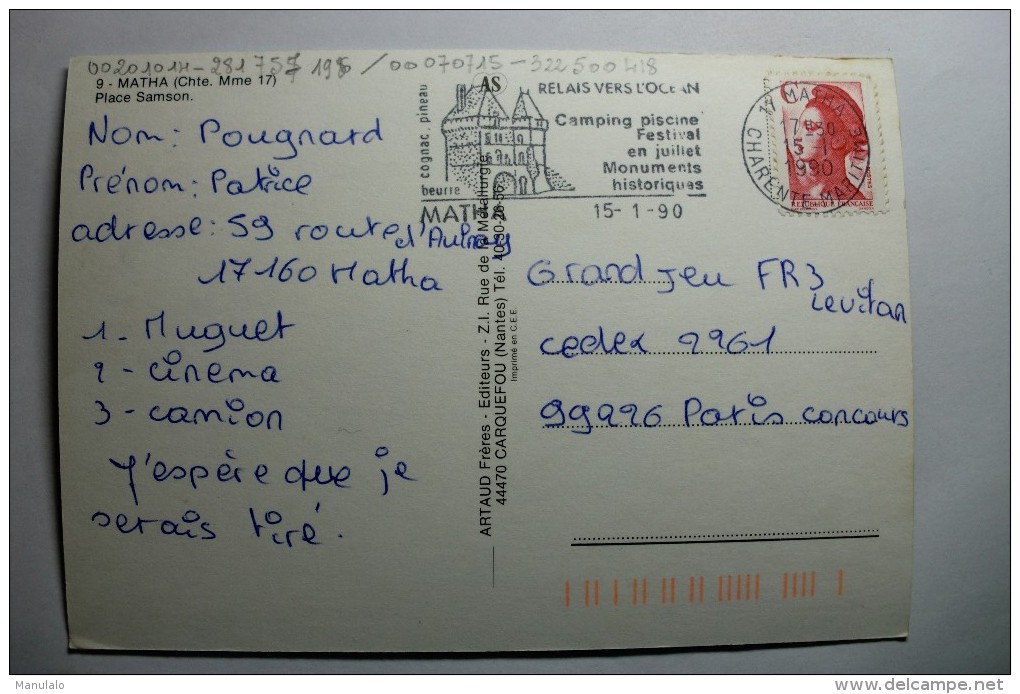 0020101H-281757 195 /00070715-322500418
9 - MATHA (Chte. Mme 17)
Place Samson.
AS
cognac, pineau
beurre
MATHA
RELAIS VERS L'OCEAN
Camping piscine
Festival
en juillet
Monuments
historiques
15- 1 -90
17 MATHA
17H30
15 - 1
1990
CHARENTE MARITIME
REPUBLIQUE FRANÇAISE
Nom: Pougnard
Prénom: Patrice
adresse: 59 route d'Aulnay
17160 Matha
1_ Muguet
2 - cinema
3 - camion
J'espère que je
serais tiré.
ARTAUD Frères - Editeurs - Z.I. Rue de la Métallurgie
44470 CARQUEFOU (Nantes) Tél. 40-30-28-36
Imprimé en C.E.E.
Grand Jeu FR3
Levitan
cedex 2961
99996 Paris concours
Manulalo